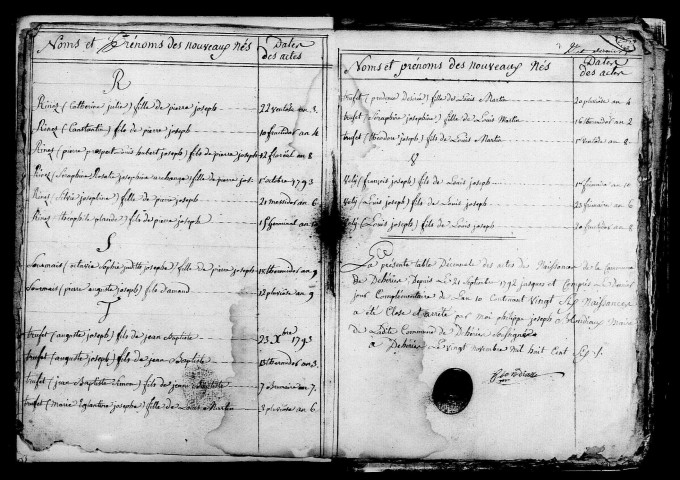 Noms et Prénoms des nouveaux Nés
Dates des actes
R
Rinez (Catherine julie) fille de pierre joseph 22 ventose an 3.
Rinez (Constantin) fils de pierre joseph 10 fructidor an 4
Rinez (pierre prospert hubert joseph) fils de pierre joseph 12 floréal an 8
Rinez (Séraphine Rosate josephine archange) fille de pierre jos. 1er octobre 1793
Rinez (Silvie josephine) fille de pierre joseph 21 messidor an 6
Rinez (théophile placide) fils de pierre joseph germinal an
S
(octavie Sophie judith josephe) fille de pierre joseph 18 thermidor an 9
(pierre auguste joseph) fils d'amand 12 pluviose an 9
T
trufet (auguste joseph) fils de jean Baptiste 23 Xbre 1793
trufet (auguste joseph) fils de jean Baptiste 13 thermidor an 3.
trufet (jean Baptiste Simon) fils de jean Baptiste 7 brumaire an 7.
trufet (marie Eglantine josephe) fille de Louis Martin 3 pluviose an 6.
Noms et prénoms des nouveaux Nés
Dates des actes
trufet (prudence Désiré) fille de Louis Martin 20 pluviose an 4
trufet (Séraphine josephine) fille de Louis Martin 16 thermidor an 2
trufet (théodore joseph) fils de Louis Martin 1er ventose an 8.
(françois joseph) fils de Louis joseph 1er frimaire an 10
joseph) fils de Louis joseph 25 frimaire an 6
(Louis joseph) fils de Louis joseph 30 fructidor an 8
La présente table Décennale des actes de Naissances de la Commune
De Dehéries Depuis le 21 Septembre 1792 jusques et Compris le Dernier
jour Complementaire de L'an 10 Contenant Vingt Sept Naissances
a été Close et arreté par moi philippe joseph Maire
de Ladite Commune de Dehéries Soussigné
a Dehéries Le Vingt novembre Mil huit Cent Sept.